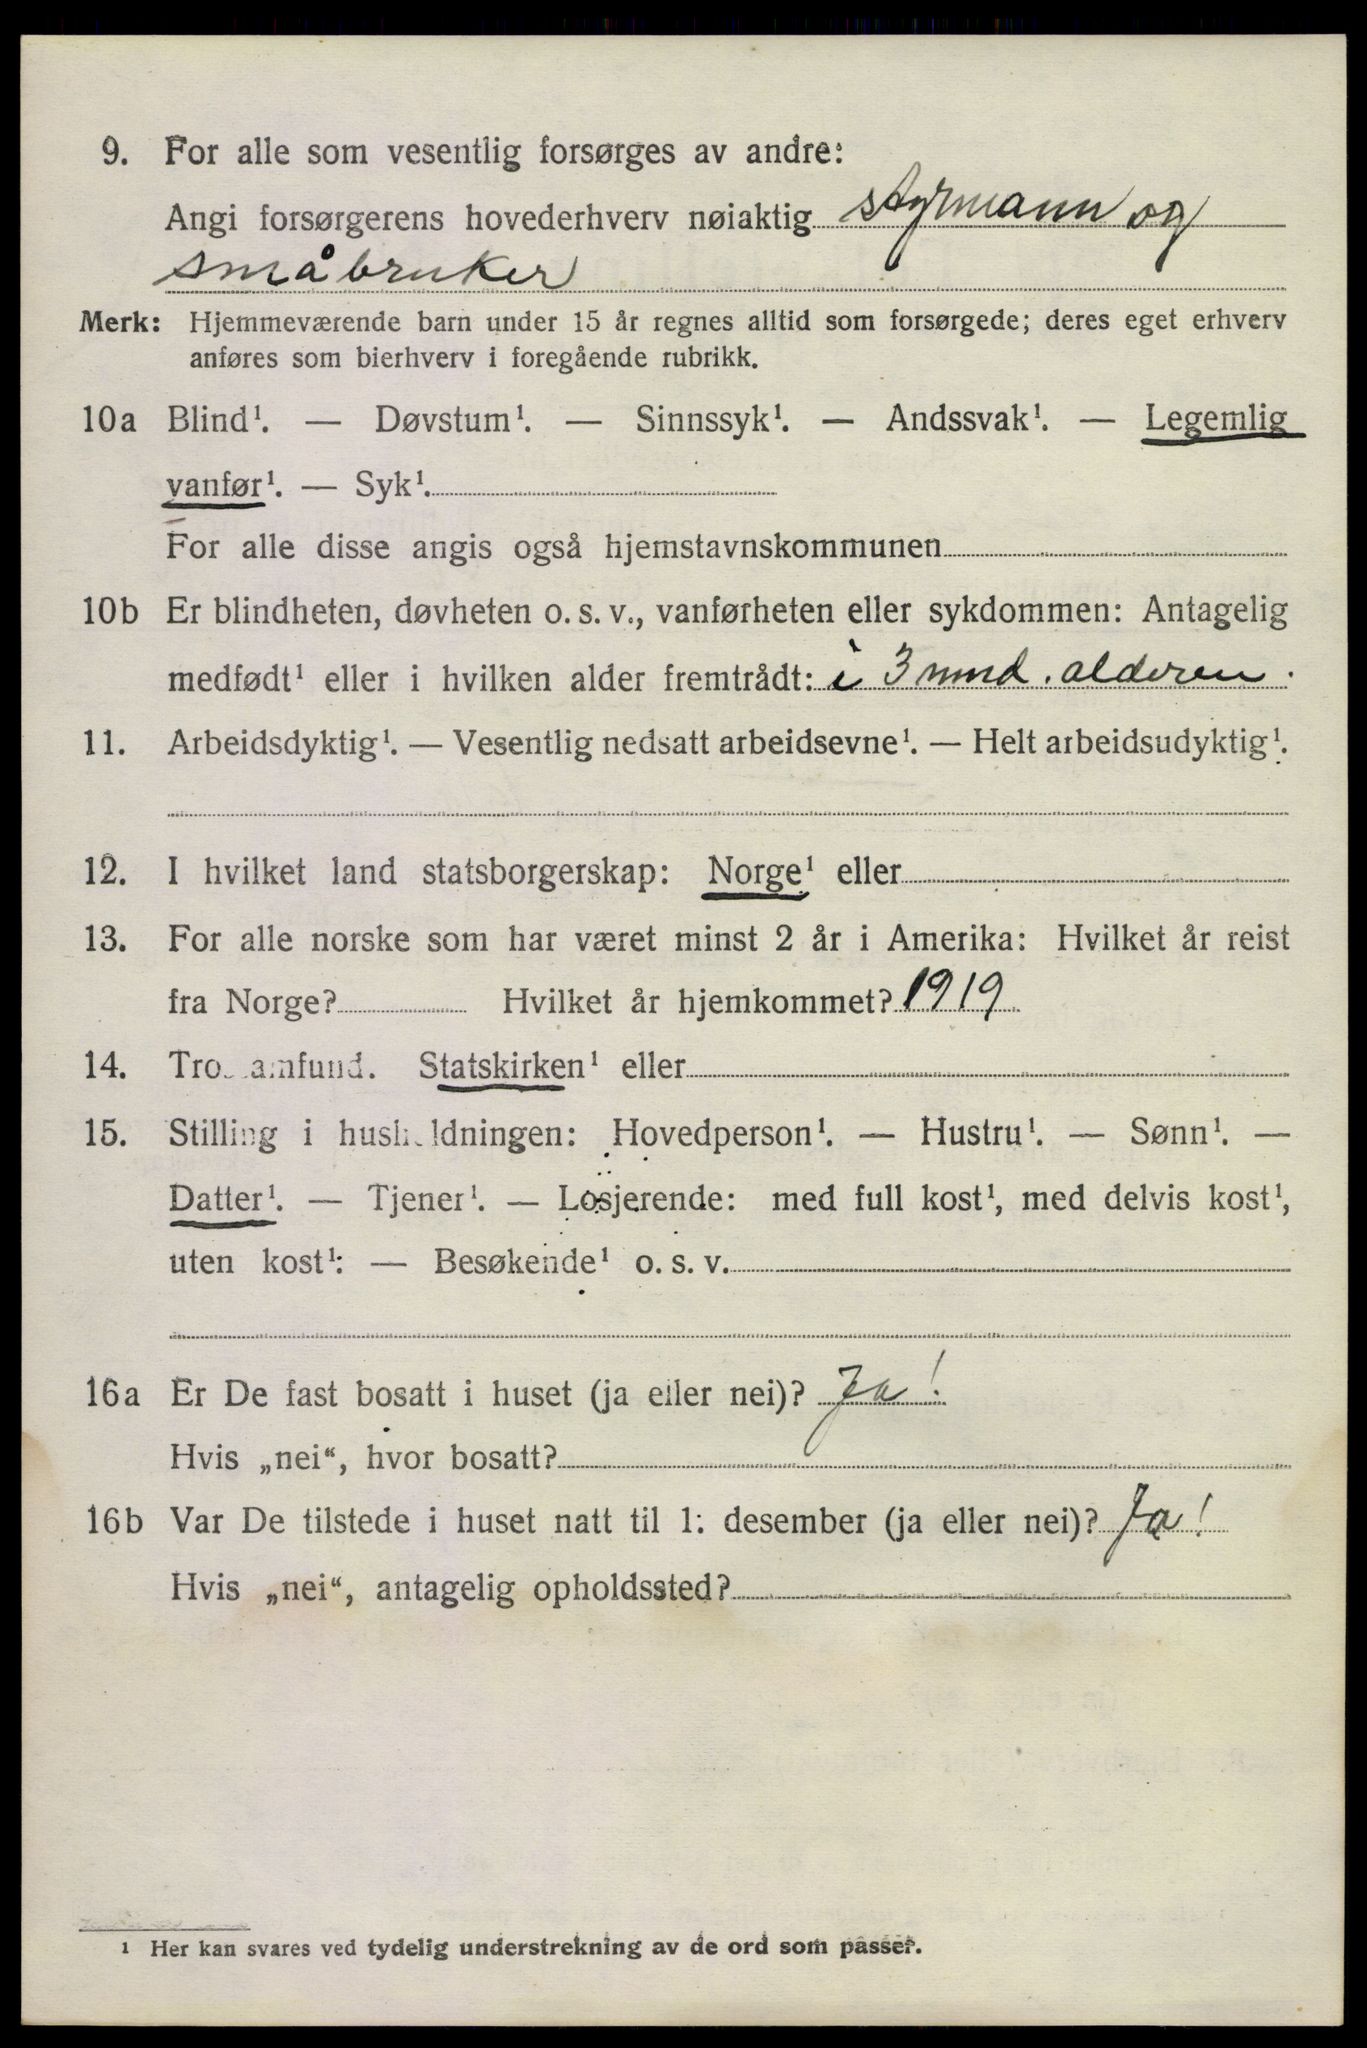 9. For alle som vesentlig forsørges av andre:
Angi forsørgerens hovederhverv nøiaktig styrmann og
småbruker
Merk: Hjemmeværende barn under 15 år regnes alltid som forsørgede; deres eget erhverv
anføres som bierhverv i foregående rubrikk.
10a Blind¹. — Døvstum¹. — Sinnssyk¹. — Andssvak¹. — Legemlig
vanfør¹. — Syk¹.
For alle disse angis også hjemstavnskommunen
10b Er blindheten, døvheten o. s. v., vanførheten eller sykdommen: Antagelig
medfødt¹ eller i hvilken alder fremtrådt: i 3 mnd. alderen.
11. Arbeidsdyktig¹. — Vesentlig nedsatt arbeidsevne¹. — Helt arbeidsudyktig¹.
12. I hvilket land statsborgerskap: Norge¹ eller
13. For alle norske som har været minst 2 år i Amerika: Hvilket år reist
fra Norge? Hvilket år hjemkommet? 1919
14. Trossamfund. Statskirken¹ eller
15. Stilling i husholdningen: Hovedperson¹. — Hustru¹. — Sønn¹. —
Datter¹. — Tjener¹. — Losjerende: med full kost¹, med delvis kost¹,
uten kost¹: — Besøkende¹ o. s. v.
16a Er De fast bosatt i huset (ja eller nei)? Ja!
Hvis „nei“, hvor bosatt?
16b Var De tilstede i huset natt til 1. desember (ja eller nei)? Ja!
Hvis „nei“, antagelig opholdssted?
¹ Her kan svares ved tydelig understrekning av de ord som passer.